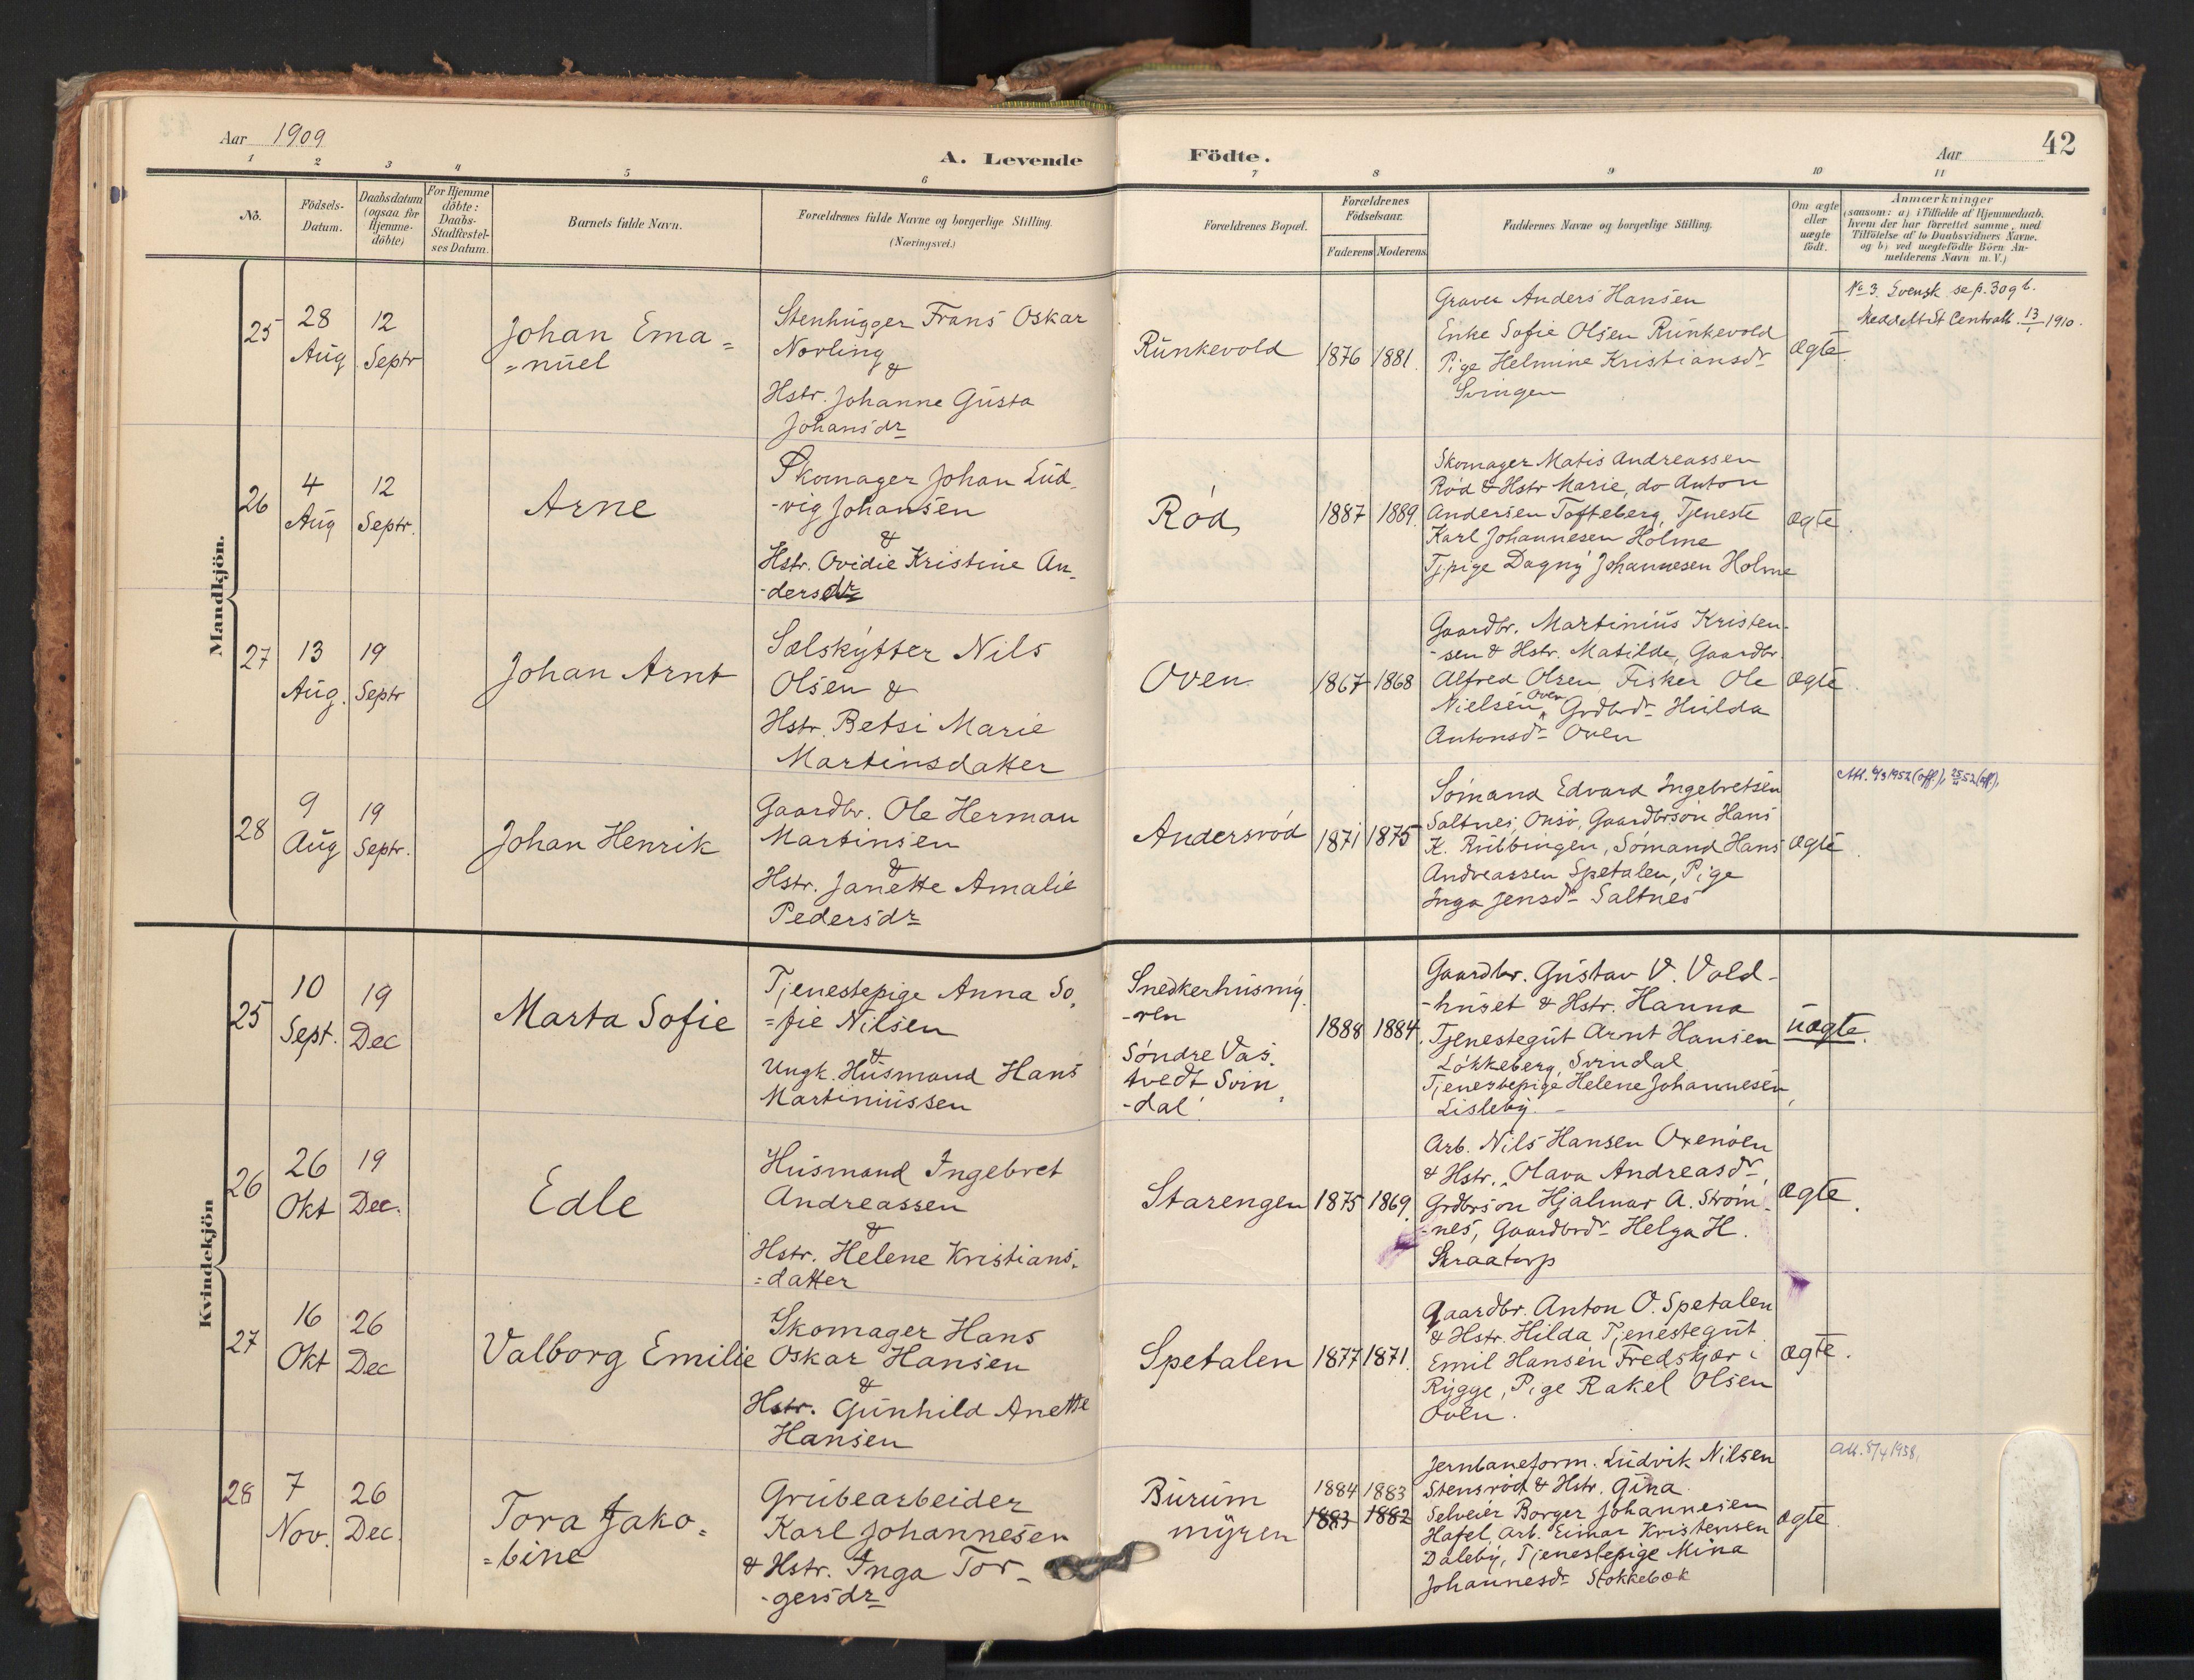 Aar 1909
A. Levende Födte.
Aar 42
1 2 3 4 5 6 7 8 9 10 11
No.
Födsels-
Datum.
Daabsdatum
(ogsaa for
Hjemme-
döbte)
For Hjemme
döbte:
Daabs-
Stadfæstel-
ses Datum.
Barnets fulde Navn.
Forældrenes fulde Navne og borgerlige Stilling.
(Næringsvei.)
Forældrenes Bopæl.
Forældrenes
Födselsaar.
Faderens Moderens
Faddernes Navne og borgerlige Stilling.
Om ægte
eller
uægte
födt.
Anmærkninger
(saasom: a) i Tilfælde af Hjemmedaab,
hvem der har forrettet samme, med
Tilföielse af to Daabsvidners Navne.
og b) ved uægtefödte Börn An-
melderens Navn m. V.)
Mandkjön.
25
28
Aug
12
Septr
Johan Ema=
=nuel
Stenhugger Frans Oskar
Norling
&
Hstr. Johanne Gusta
Johansdr
Runkevold
1876 1881.
Graver Anders Hansen
Enke Sofie Olsen Runkevold
Pige Helmine Kristiansdr
Svingen
ægte.
No 3. Svensk se p. 309 b.
Meddelt St. Centralb. 13/1 1910.
26
4
Aug
12
Septr.
Arne
Skomager Johan Lud-
-vig Johansen
&
Hstr. Ovidie Kristine An-
-dersdr
Rød
1887 1889.
Skomager Matis Andreassen
Rød & Hstr Marie, do Anton
Andersen Tofteberg, Tjeneste
Karl Johannesen Holme
Tjpige Dagny Johannesen Holme
ægte.
27
13
Aug.
19
Septr
Johan Arnt
Sælskytter Nils
Olsen &
Hstr. Betsi Marie
Martinsdatter
Oven
1867 1868
Gaardbr. Martinius Kristen-
-sen & Hstr. Matilde, Gaardbr.
Alfred Olsen, Fisker Ole
Nielsen Oven, Grdbrdr Hulda
Antonsdr Oven
ægte.
28
9
Aug
19
Septr.
Johan Henrik
Gaardbr. Ole Herman
Martinsen
&
Hstr. Janette Amalie
Pedersdr
Andersrød
1871 1875
Sømand Edvard Ingebretsen
Saltnes, Onsø, Gaardbrsøn Hans
K. Rubbingen, Sømand Hans
Andreassen Spetalen, Pige
Inga Jensdr Saltnes
ægte.
Kvindekjön
25
10
Sept.
19
Dec
Marta Sofie
Tjenestepige Anna So-
=fie Nilsen
&
Ungk. Husmand Hans
Martiniussen
Snedkerhusmy-
-ren
Søndre Vas-
tvedt Svin-
-dal.
1888 1884.
Gaardbr. Gustav V. Vold-
-huset & Hstr. Hanna
Tjenestegut Arnt Hansen
Løkkeberg, Svindal
Tjenestepige Helene Johannesen,
Lisleby.
uægte.
26
26
Okt
19
Dec.
Edle
Husmand Ingebret
Andreassen
&
Hstr. Helene Kristians-
=datter
Starengen
1875 1869.
Arb. Nils Hansen Oxenøen
& Hstr. Olava Andreasdr,
Grdbrsøn Hjalmar A. Strøm-
-nes, Gaardbrdr Helga H.
Skraatorp
ægte.
27
16
Okt
26
Dec
Valborg Emilie
Skomager Hans
Oskar Hansen
&
Hstr. Gunhild Anette
Hansen
Spetalen
1877 1871.
Gaardbr. Anton O. Spetalen
& Hstr. Hilda, Tjenestegut
Emil Hansen Fredskjær i
Rygge, Pige Rakel Olsen
Oven.
ægte.
28
7
Nov.
26
Dec.
Tora Jako=
=bine
Grubearbeider
Karl Johannesen
& Hstr. Inga Tor-
-gersdr
Burum
myren
1884 1883
1883 1882
Jernbaneform. Ludvik Nilsen
Stensrød & Hstr. Gina
Selveier Borger Johannesen
Hafel, Arb. Eimar Kristensen
Daleby, Tjenestepige Mina
Johannesdr Stokkebæk
ægte.
Att. 8/4 1938.